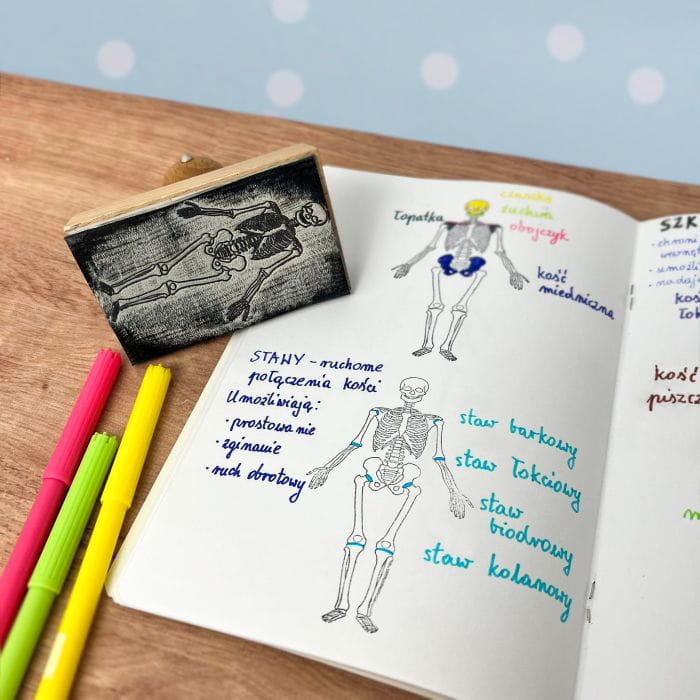 czaszka
żuchwa
łopatka
obojczyk
kość
miedniczna
STAWY - ruchome
połączenia kości
Umożliwiają:
· prostowanie
· zginanie
· ruch obrotowy
staw barkowy
staw łokciowy
staw
biodrowy
staw kolanowy
SZK
· chroni
· umożli
· nadaj
kość
piszcz